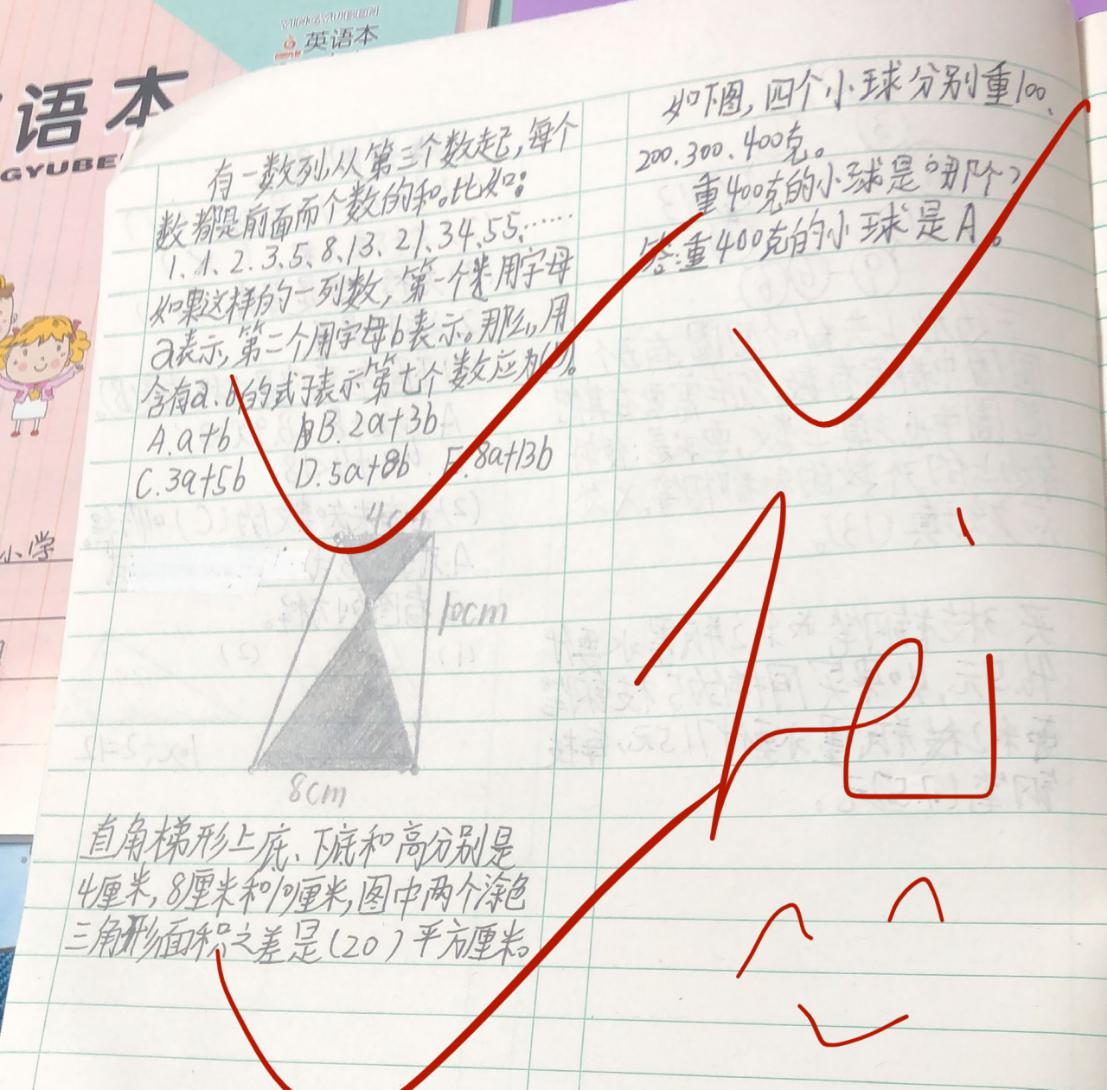 英语本
语本
GYUBE
小学
有一数列,从第三个数起,每个
数都是前面而个数的和。比如:
1、1、2、3、5、8、13、21、34、55、……
如果这样的一列数,第一个是用字母
a表示,第二个用字母b表示。那么,用
含有a、b的式子表示第七个数应为( )。
A.a+b B.2a+3b
C.3a+5b D.5a+8b E.8a+13b
4cm
10cm
8cm
直角梯形上底、下底和高分别是
4厘米,8厘米和10厘米,图中两个涂色
三角形面积之差是(20)平方厘米。
如下图,四个小球分别重100、
200、300、400克。
重400克的小球是哪个?
答:重400克的小球是A。